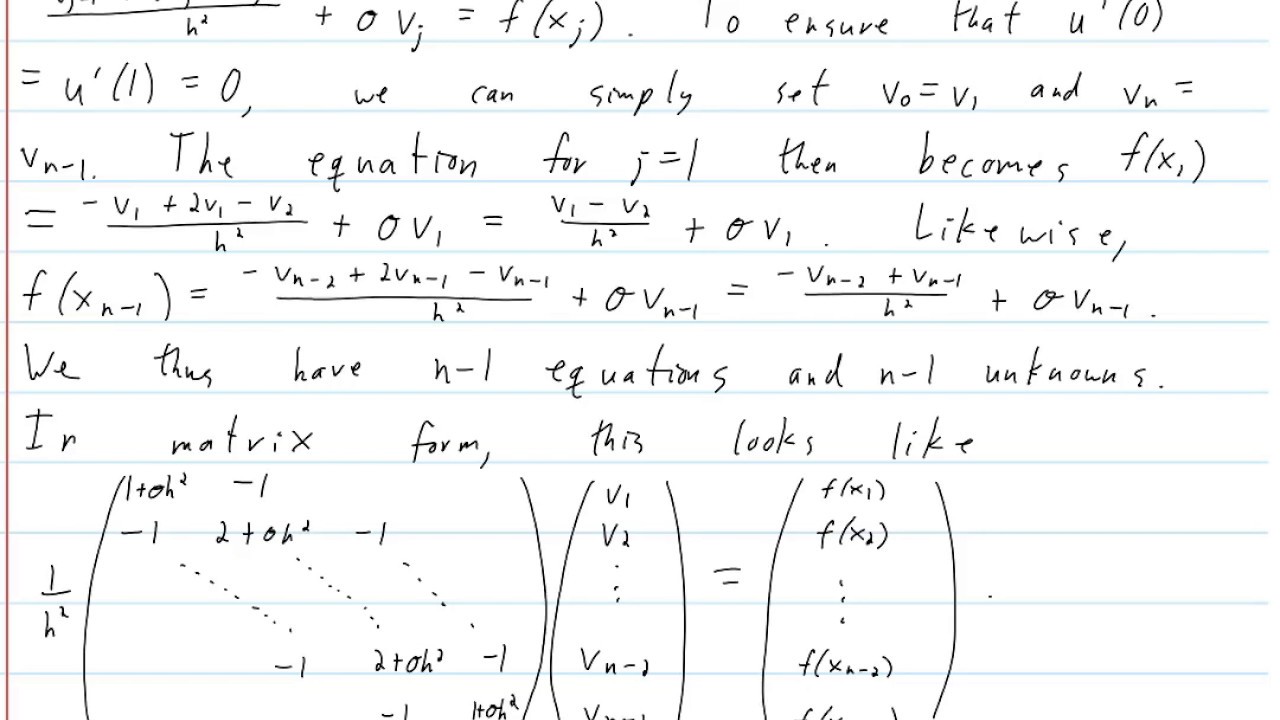 h² + σ vⱼ = f(xⱼ). To ensure that u'(0)
= u'(1) = 0, we can simply set v₀ = v₁ and vₙ =
vₙ₋₁. The equation for j=1 then becomes f(x₁)
= (- v₁ + 2v₁ - v₂)/h² + σ v₁ = (v₁ - v₂)/h² + σ v₁. Likewise,
f(xₙ₋₁) = (- vₙ₋₂ + 2vₙ₋₁ - vₙ₋₁)/h² + σ vₙ₋₁ = (- vₙ₋₂ + vₙ₋₁)/h² + σ vₙ₋₁.
We thus have n-1 equations and n-1 unknowns.
In matrix form, this looks like
1+σh² -1 v₁ f(x₁)
-1 2+σh² -1 v₂ f(x₂)
1/h² ⋱ ⋱ ⋱ ⋮ = ⋮ .
-1 2+σh² -1 vₙ₋₂ f(xₙ₋₂)
-1 1+σh²